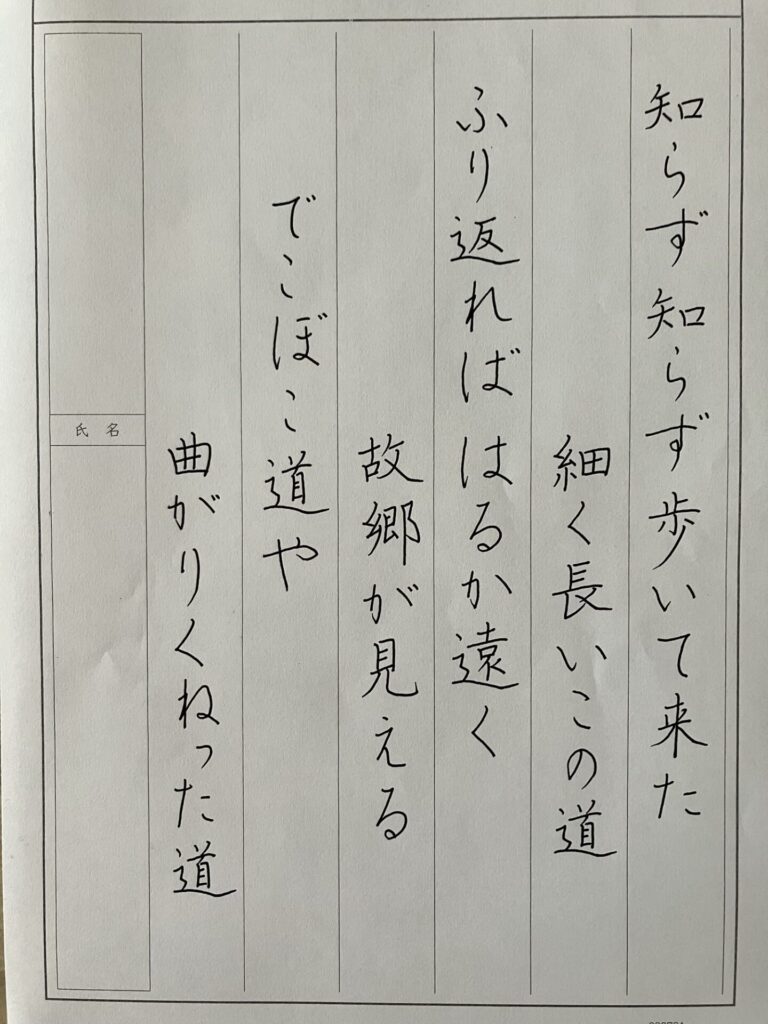 知らず知らず歩いて来た
細く長いこの道
ふり返ればはるか遠く
故郷が見える
でこぼこ道や
曲がりくねった道
氏名